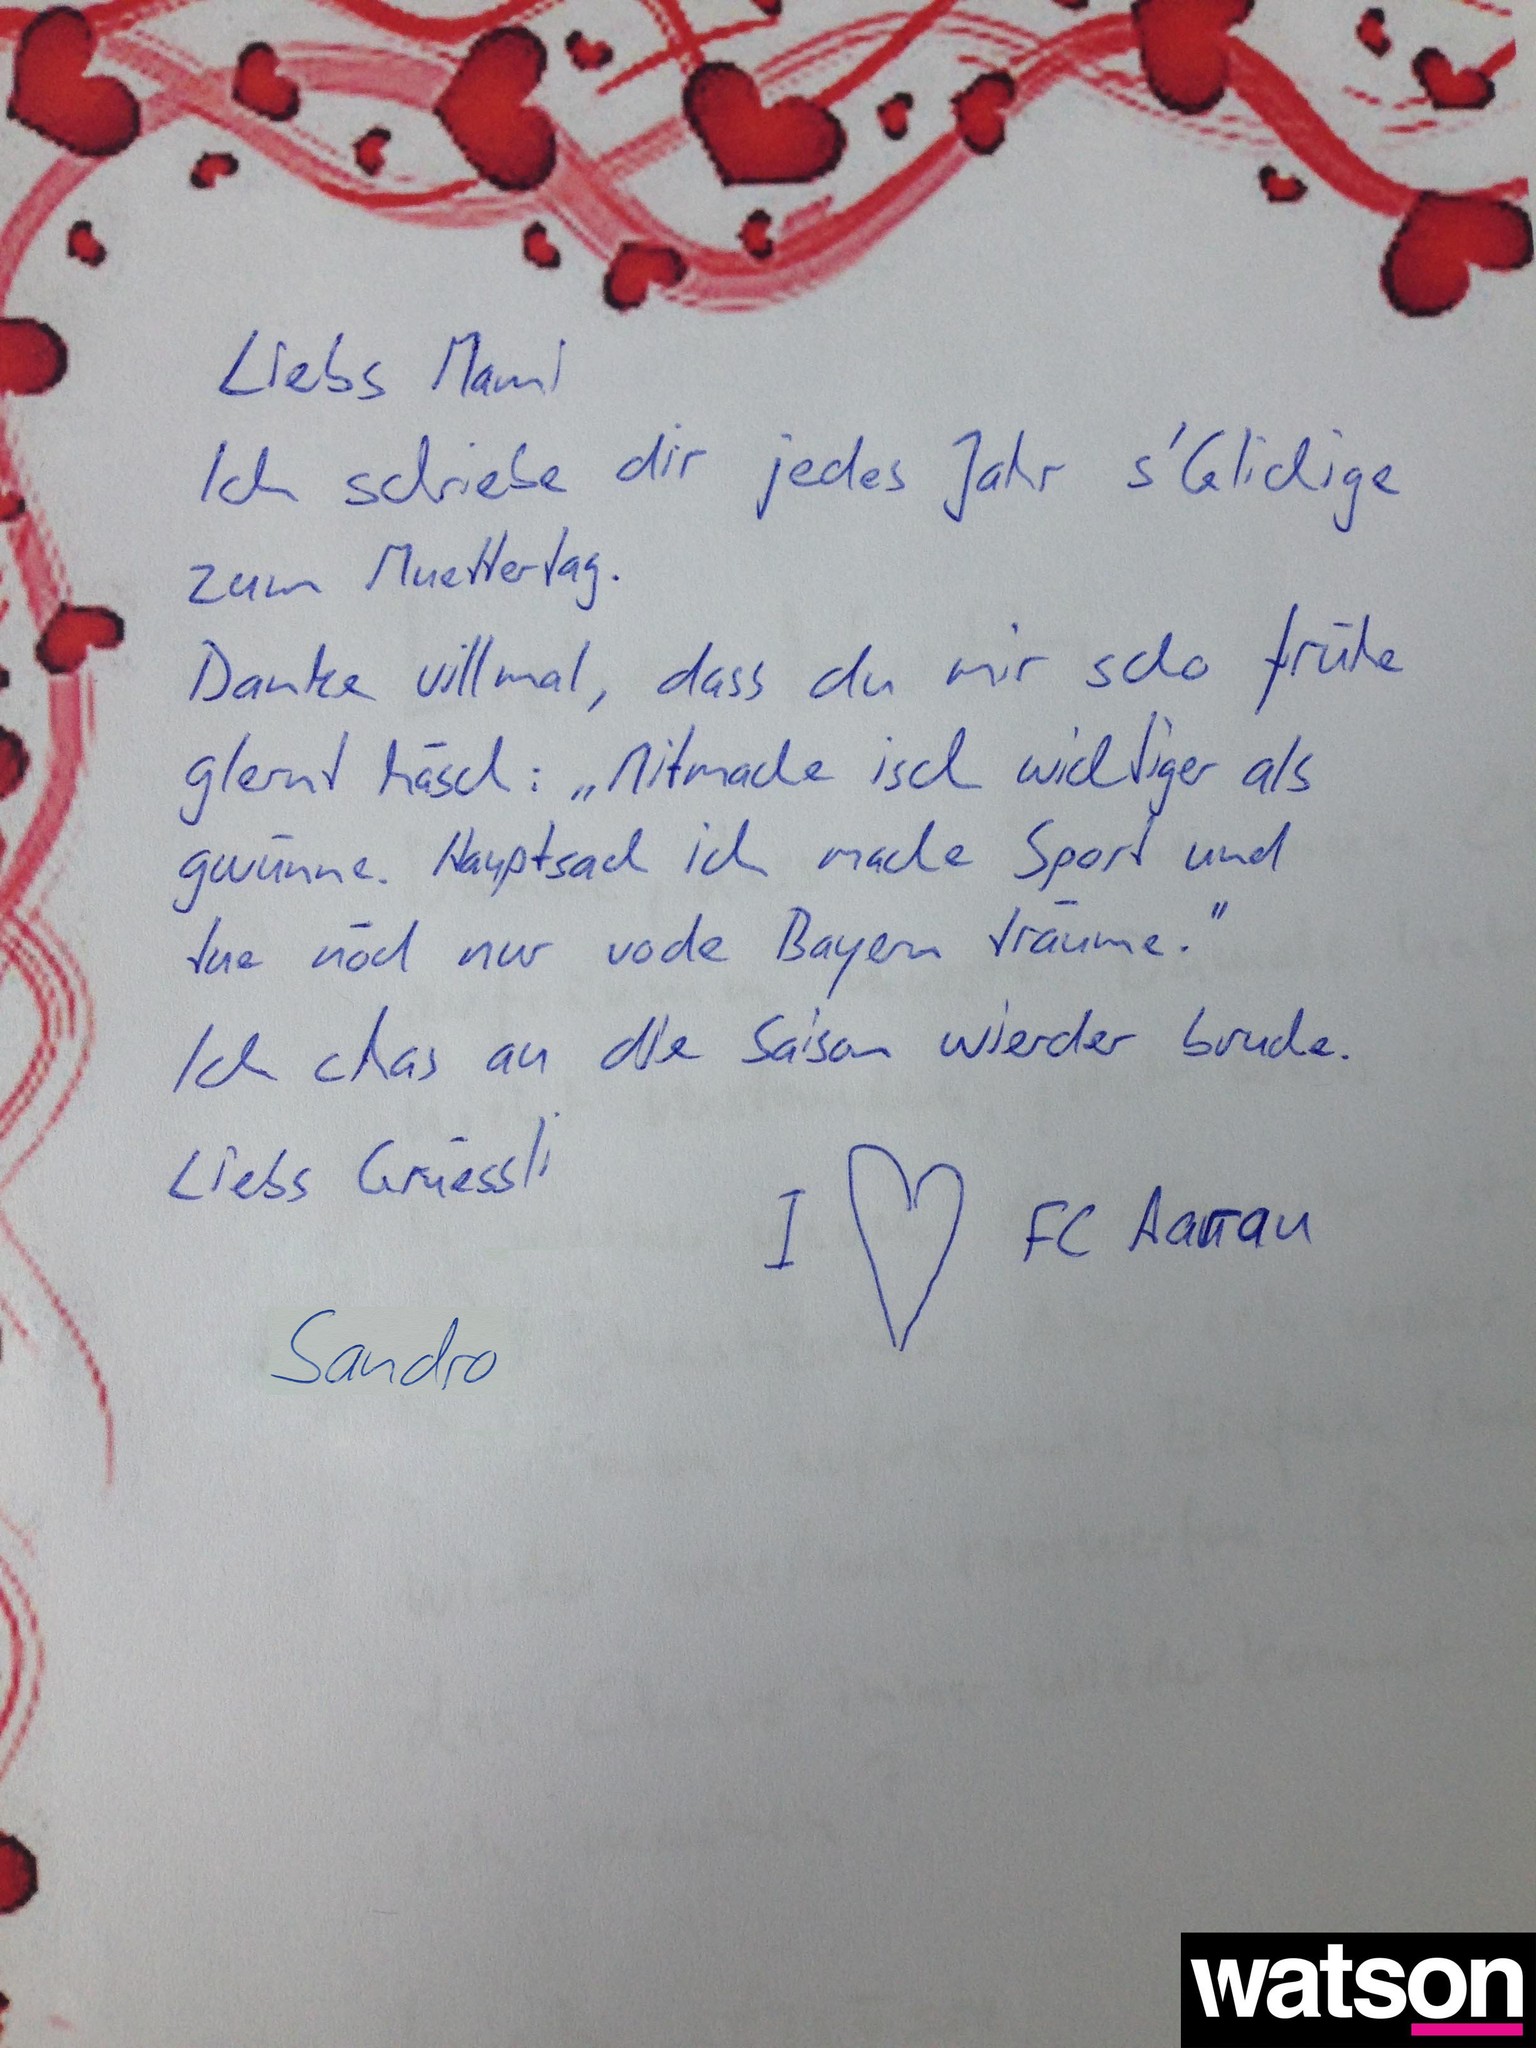 Liebs Mami
Ich schriebe dir jedes Jahr s'Glichige
zum Muettertag.
Danke villmal, dass du mir scho frühe
glernt häsch: „Mitmache isch wichtiger als
gwünne. Hauptsach ich mache Sport und
tue nöd nur vode Bayern träume."
Ich chas au die Saison wierder bruche.
Liebs Grüessli
I ♡ FC Aarau
Sandro
watson